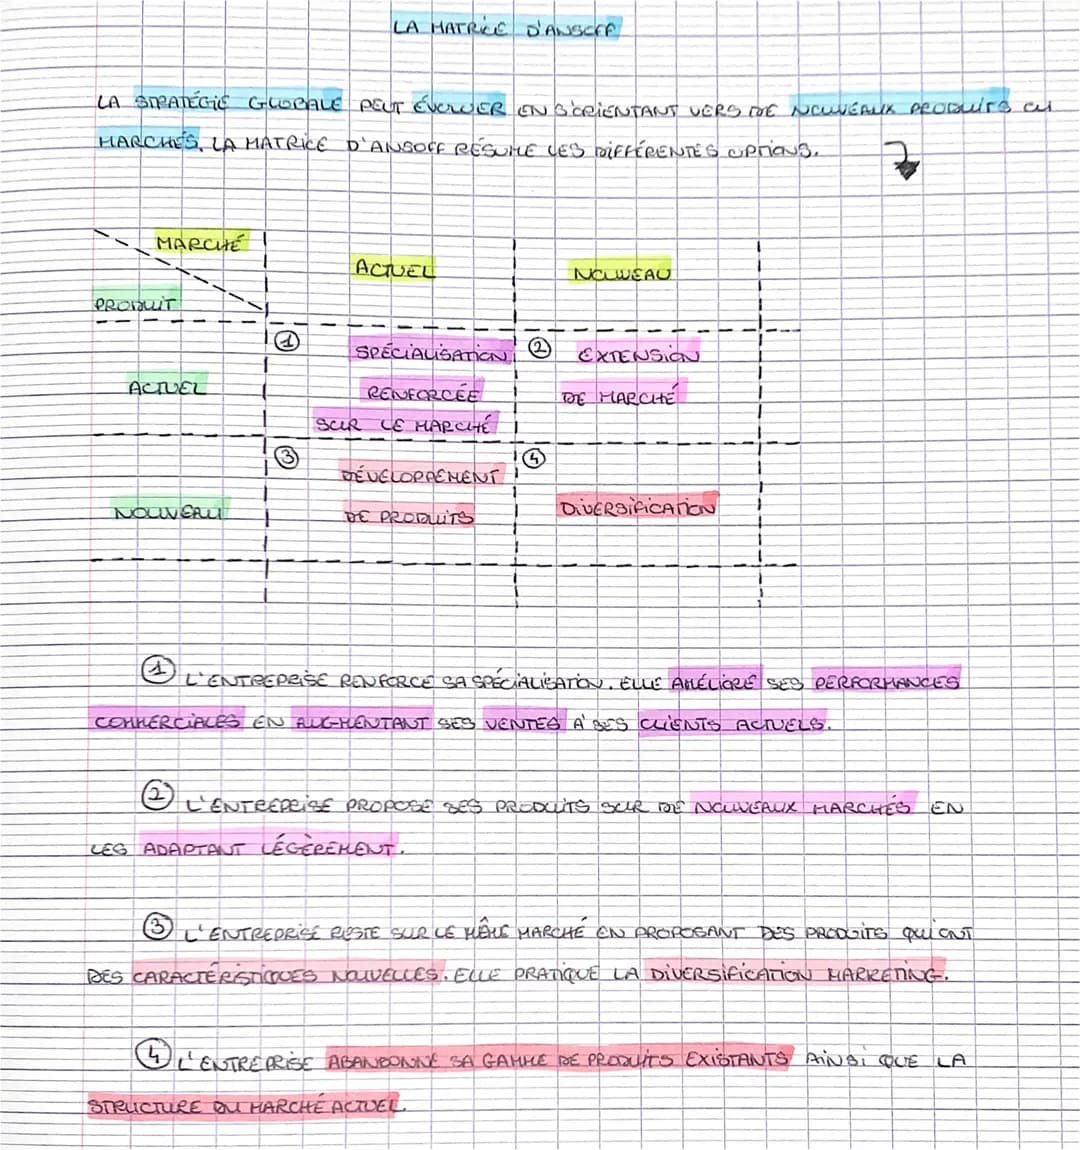 LA MATRICE D'ANSOFF
LA STRATÉGIE GLOBALE PEUT ÉVOLUER EN S'ORIENTANT VERS DE NOUVEAUX PRODUITS OU
MARCHÉS. LA MATRICE D'ANSOFF RÉSUME LES DIFFÉRENTES OPTIONS.
MARCHÉ
PRODUIT
ACTUEL
NOUVEAU
ACTUEL
① SPÉCIALISATION
RENFORCÉE
SUR LE MARCHÉ
② EXTENSION
DE MARCHÉ
NOUVEAU
③ DÉVELOPPEMENT
DE PRODUITS
④ DIVERSIFICATION
① L'ENTREPRISE RENFORCE SA SPÉCIALISATION. ELLE AMÉLIORE SES PERFORMANCES
COMMERCIALES EN AUGMENTANT SES VENTES À SES CLIENTS ACTUELS.
② L'ENTREPRISE PROPOSE SES PRODUITS SUR DE NOUVEAUX MARCHÉS EN
LES ADAPTANT LÉGÈREMENT.
③ L'ENTREPRISE RESTE SUR LE MÊME MARCHÉ EN PROPOSANT DES PRODUITS QUI ONT
DES CARACTÉRISTIQUES NOUVELLES. ELLE PRATIQUE LA DIVERSIFICATION MARKETING.
④ L'ENTREPRISE ABANDONNE SA GAMME DE PRODUITS EXISTANTS AINSI QUE LA
STRUCTURE DU MARCHÉ ACTUEL.